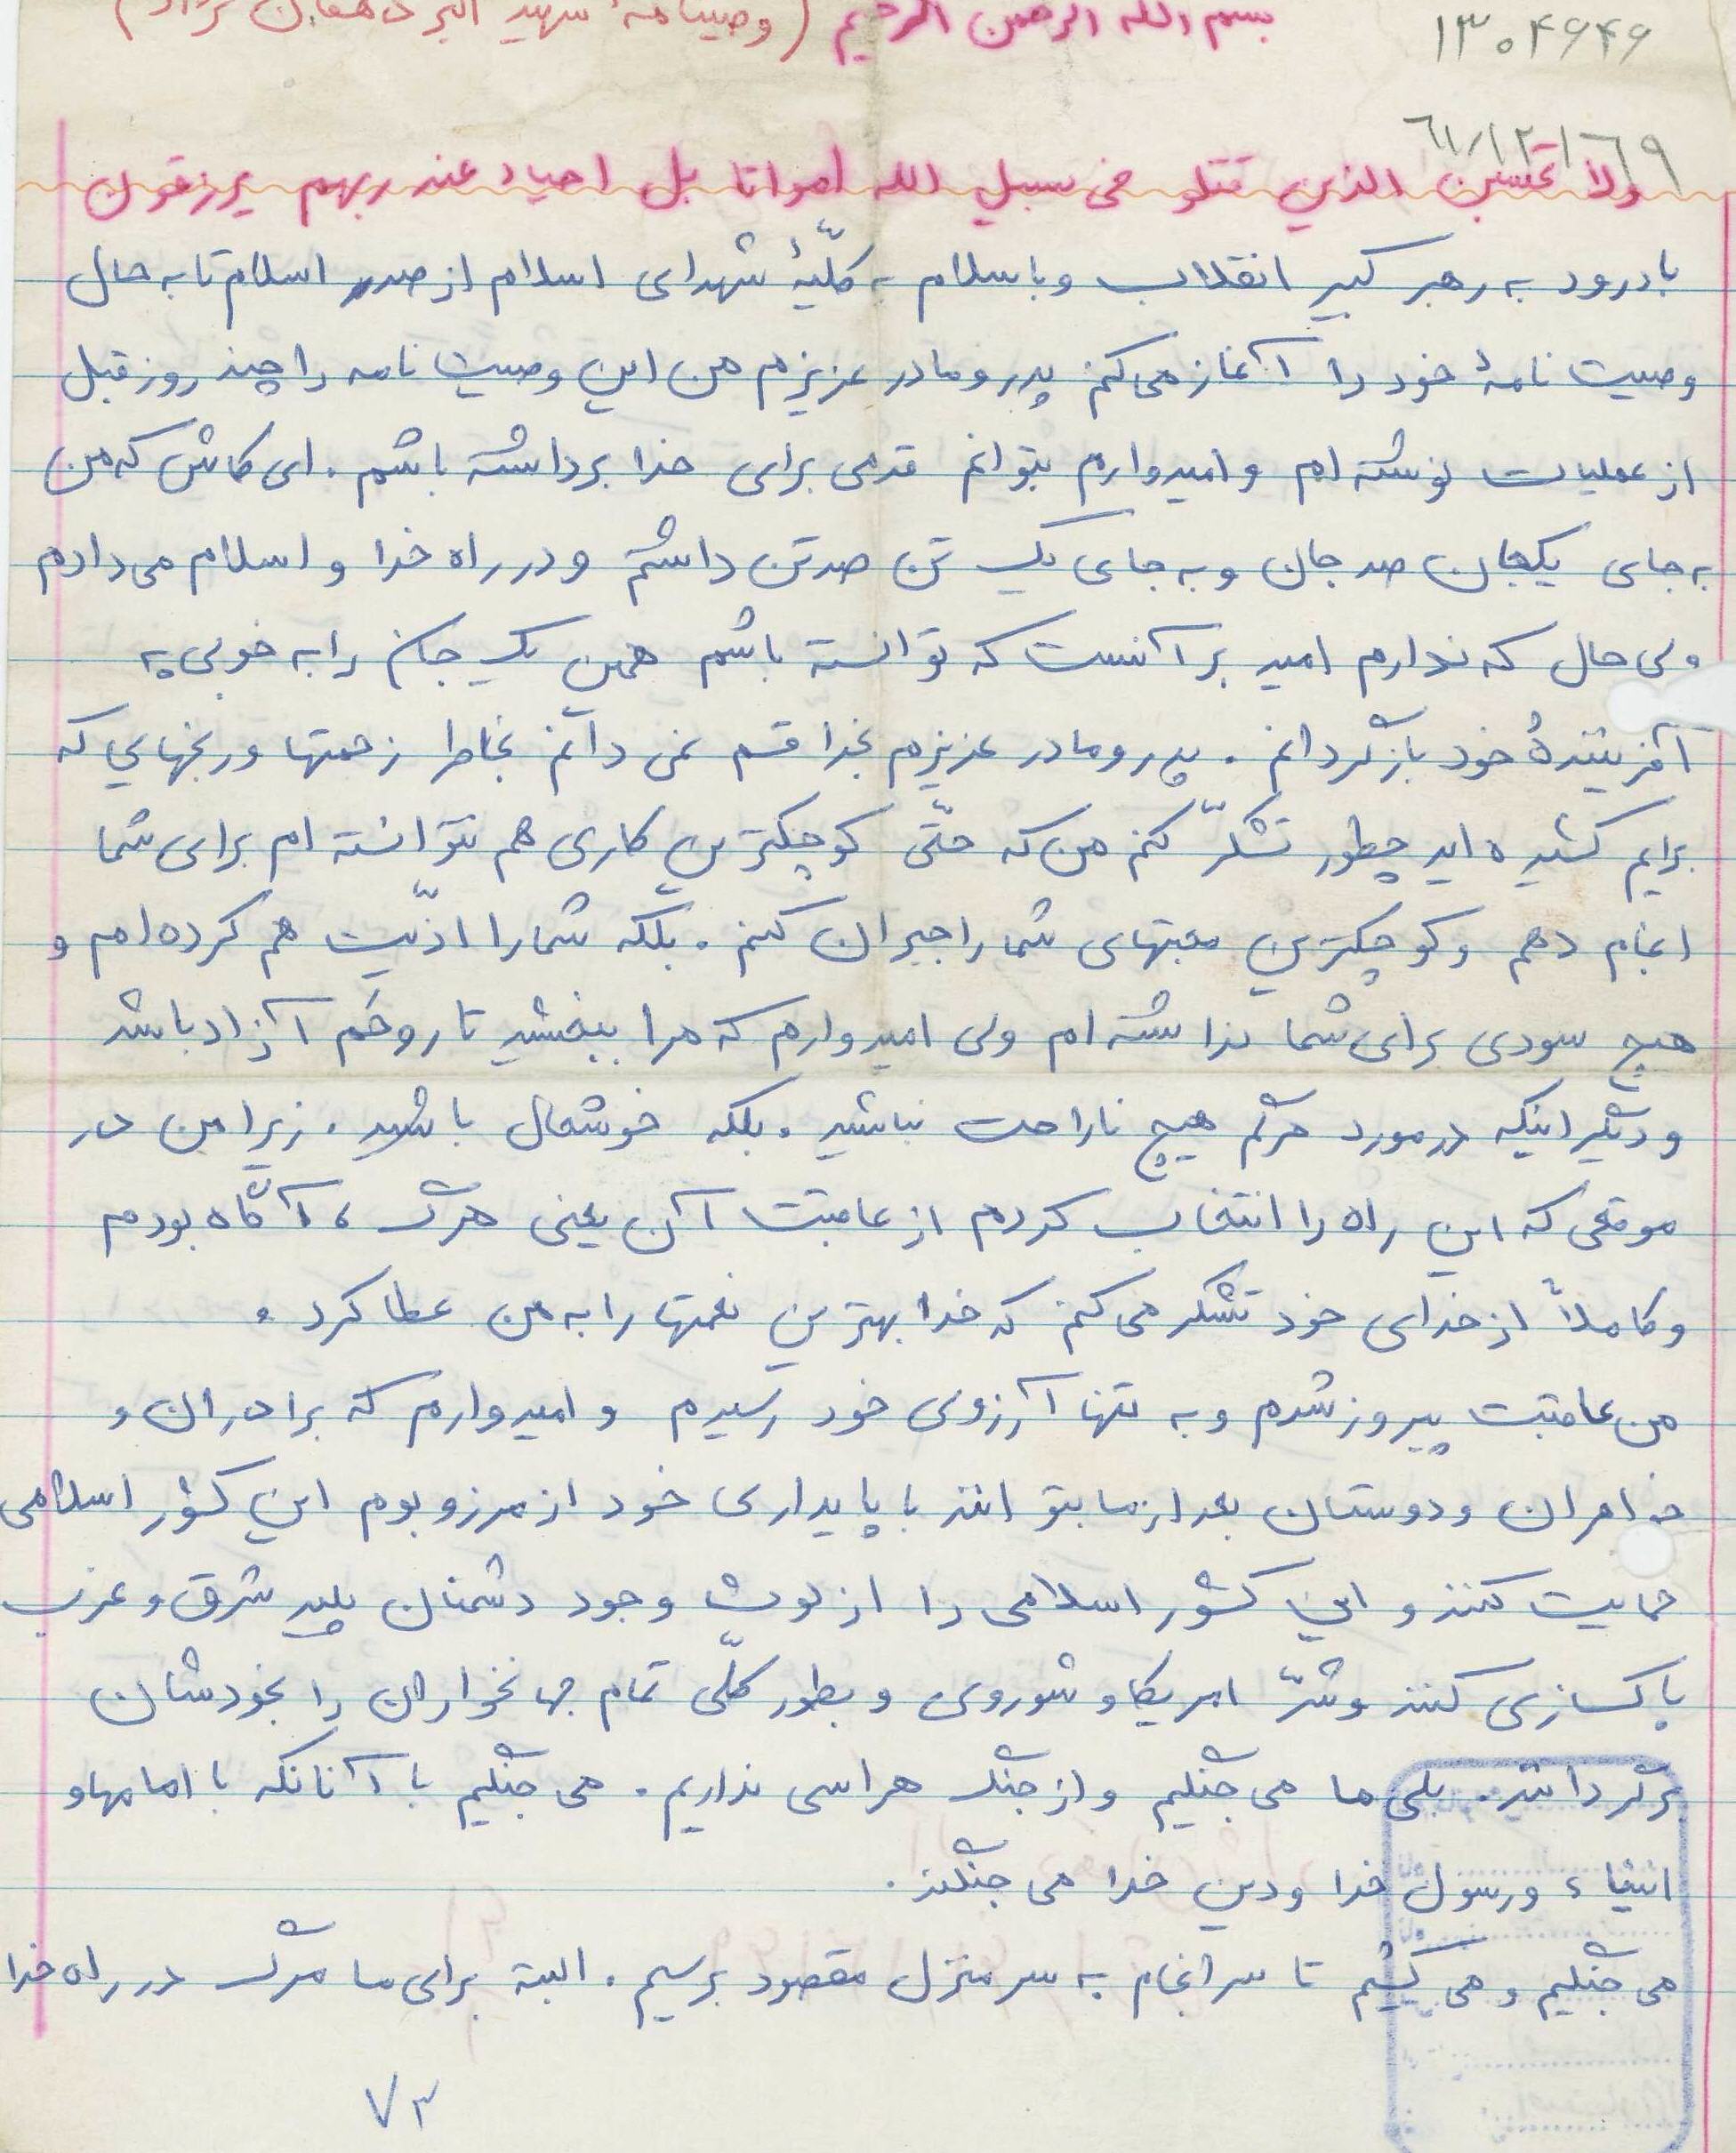 ۱۳۰۴۶۴۶
بسم الله الرحمن الرحیم (وصیتنامهٔ شهید اکبر دهقان نژاد)
۶۱/۱۲۱۶۹
ولا تحسبن الذین قتلو فی سبیل الله امواتا بل احیاء عند ربهم یرزقون
با درود به رهبر کبیر انقلاب و با سلام به کلّیهٔ شهدای اسلام از صدر اسلام تا به حال
وصیت نامهٔ خود را آغاز می کنم پدر و مادر عزیزم من این وصیت نامه را چند روز قبل
از عملیات نوشته ام و امیدوارم بتوانم قدمی برای خدا برداشته باشم . ای کاش که من
به جای یکجان صد جان و به جای یک تن صد تن داشتم و در راه خدا و اسلام می دادم
ولی حال که ندارم امید بر آنست که توانسته باشم همین یک جانم را به خوبی به
آفرینندهٔ خود بازگردانم . پدر و مادر عزیزم بخدا قسم نمی دانم بخاطر زحمتها و رنجهایی که
برایم کشیده اید چطور تشکّر کنم من که حتّی کوچکترین کاری هم نتوانسته ام برای شما
انجام دهم و کوچکترین محبتهای شما را جبران کنم . بلکه شما را اذّیت هم کرده ام و
هیچ سودی برای شما نداشته ام ولی امیدوارم که مرا ببخشید تا روحَم آزاد باشد
و دیگر اینکه در مورد مرگم هیچ ناراحت نباشید . بلکه خوشحال باشید . زیرا من در
موقعی که این راه را انتخاب کردم از عاقبت آن یعنی مرگ ، آگاه بودم
و کاملاً از خدای خود تشکر می کنم که خدا بهترین نعمتها را به من عطا کرد .
من عاقبت پیروز شدم و به تنها آرزوی خود رسیدم و امیدوارم که برادران و
خواهران و دوستان بعد از ما بتوانند با پایداری خود از مرز و بوم این کشور اسلامی
حمایت کنند و این کشور اسلامی را از لوث وجود دشمنان پلید شرق و غرب
پاکسازی کنند و شرّ امریکا و شوروی و بطور کلّی تمام جهانخواران را بخودشان
برگردانند . بلی ما می جنگیم و از جنگ هراسی نداریم . می جنگیم با آنانکه با امامها و
انبیاء و رسول خدا و دین خدا می جنگند .
می جنگیم و می کشیم تا سرانجام به سر منزل مقصود برسیم . البته برای ما مرگ در راه خدا
۷۳